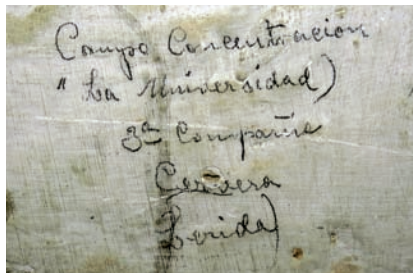 Campo Concentracion
" La Universidad)
3ª Compañia
Cervera
Lerida)